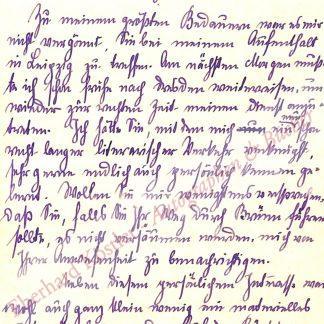 Zu meinem größten Bedauern war es mir
nicht vergönnt, Sie bei meinem Aufenthalt
in Leipzig zu treffen. Am nächsten Morgen muß-
te ich schon frühe nach Dresden weiterreisen, um
wieder zur rechten Zeit meinen Dienst anzu-
treten. Ich hätte Sie, mit dem mich nun schon
recht langer literarischer Verkehr verknüpft,
sehr gerne endlich auch persönlich kennen ge-
lernt. Wollen Sie mir wenigstens versprechen,
daß Sie, falls Sie Ihr Weg durch Brünn führen
sollte, es nicht versäumen werden, mich von
Ihrer Anwesenheit zu benachrichtigen.
Neben diesem persönlichen Interesse war
wohl auch ganz klein wenig ein materielles
Eberhard Köstler Autographen &